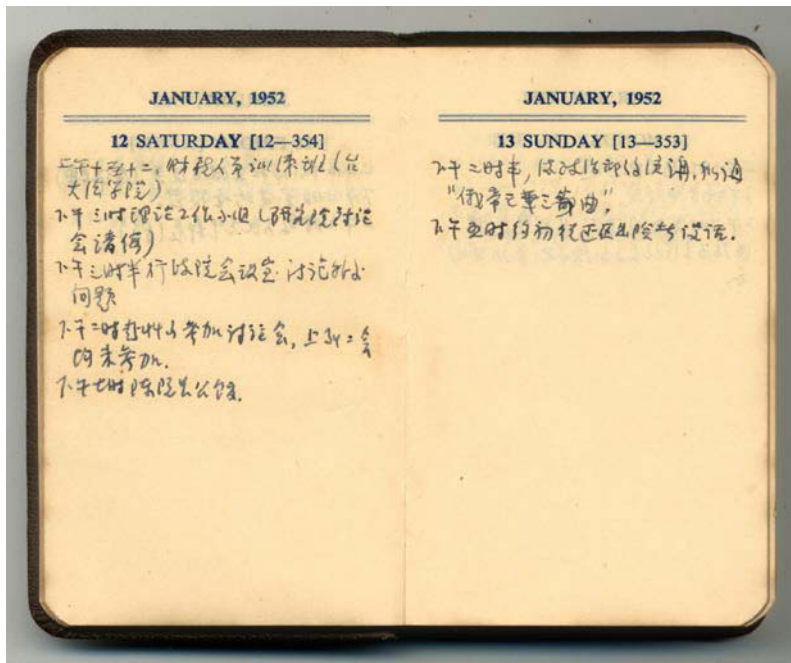 JANUARY, 1952
12 SATURDAY [12—354]
上午十至十二, 财税人员训练班(台
大法学院)
下午三时理论工作小组(研究院讨论
会请假)
下午三时半行政院会议室讨论外
问题
下午二时 参加讨论会, 上列二会
均未参加.
下午七时陈院长公馆.
JANUARY, 1952
13 SUNDAY [13—353]
下午二时半, 政治部 演讲,
"俄帝 三部曲",
下午五时约 谈话.